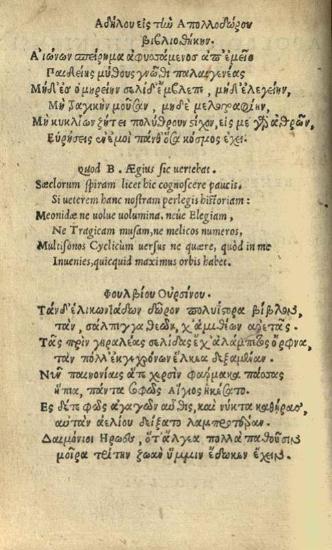 Ἀδήλου εἰς τὴν Ἀπολλοδώρου
βιβλιοθήκην.
Αἰώνων σπείρημα ἀφυσσάμενος ἀπ' ἐμεῖο
Παιδείης μύθους γνῶθι παλαιγενέας
Μηδ' ἐς ὁμηρείην σελίδ' ἔμβλεπε, μηδ' ἐλεγείην,
Μὴ τραγικὴν μοῦσαν, μηδὲ μελογραφίην,
Μὴ κυκλίων ζήτει πολύθρουν στίχον, εἰς με γὰρ ἀθρῶν,
Εὑρήσεις ἐν ἐμοὶ πάνθ' ὅσα κόσμος ἔχει.
Quod B. Aegius sic vertebat.
Sæclorum spiram licet hic cognoscere paucis.
Si veterem hanc nostram perlegis historiam:
Meonidæ ne volue volumina. neue Elegiam,
Ne Tragicam musam, ne melicos numeros,
Multisonos Cyclicûm versus ne quære, quòd in me
Inuenies, quicquid maximus orbis habet.
Φουλβίου Οὐρσίνου.
Τάνδ' ἑλικωνιάδων δῶρον πολυίστορα βίβλον,
τὰν, σάλπιγγα θεῶν, χ' ἀμιθέων ἀρετᾶς.
Τὰς πρὶν γηραλέας σελίδας ἐχάλαμπρος ὄρφνα,
τὰν πόλλ' ἐκ χρόνων ἕλκεα δεξαμέναν.
Νῦν παιηονίαις ἀπὸ χερσὶν φάρμακα πάσσας
ἤπια, πάντα σοφῶς Αἴγιος ἠκέσατο.
Ἐς δ' ἔτι φῶς ἀγαγὼν αὖθις, καὶ νύκτα καθήρας,
αὐτὰν ἀελίου δεῖξατο λαμπροτέραν.
Δαιμόνιοι Ἥρωες, ὅτ' ἄλγεα πολλὰ παθοῦσιν
μοῖρα τρίτην ζωὰν ὔμμιν ἔδωκεν ἔχειν.